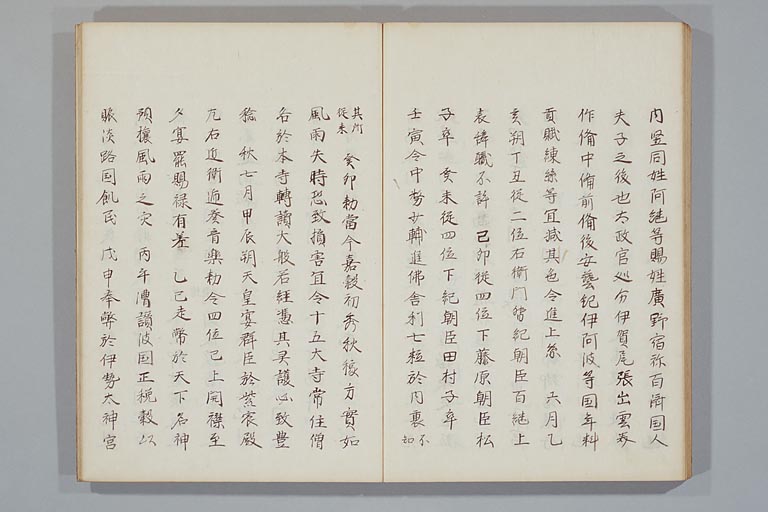 内竪同姓阿継等賜姓廣野宿祢百済国人
夫子之後也太政官処分伊賀尾張出雲
作備中備前備後安藝紀伊阿波等国年料
貢賦練絲等宜減其色令進上 六月乙
亥朔丁丑従二位右衛門督紀朝臣百継上
表辞職不許 己卯従四位下藤原朝臣松
子卒 癸未従四位下紀朝臣田村子卒
壬寅令中務少輔進佛舎利七粒於内裏 不知
其所従来 癸卯勅當今嘉穀初秀秋稼方實如
風雨失時恐致損害宜令十五大寺常住僧
各於本寺轉讀大般若経憑其霊護必致豊
稔 秋七月甲辰朔天皇宴群臣於紫宸殿
左右近衛逓発音樂勅令四位已上開襟至
夕宴罷賜禄有差 乙巳走幣於天下名神
預攘風雨之灾 丙午漕讃岐国正税穀以
賑淡路国飢民 戊申奉幣於伊勢大神宮